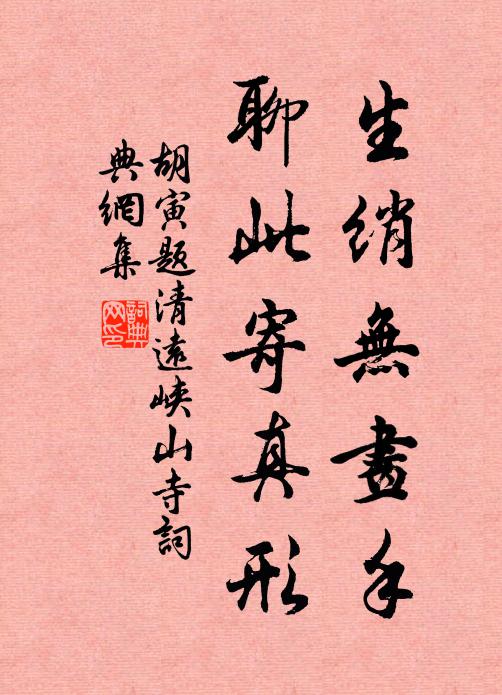 生綃無畫手
聊此寄真形
胡寅題清遠峽山寺詞
典網集
詞典網印